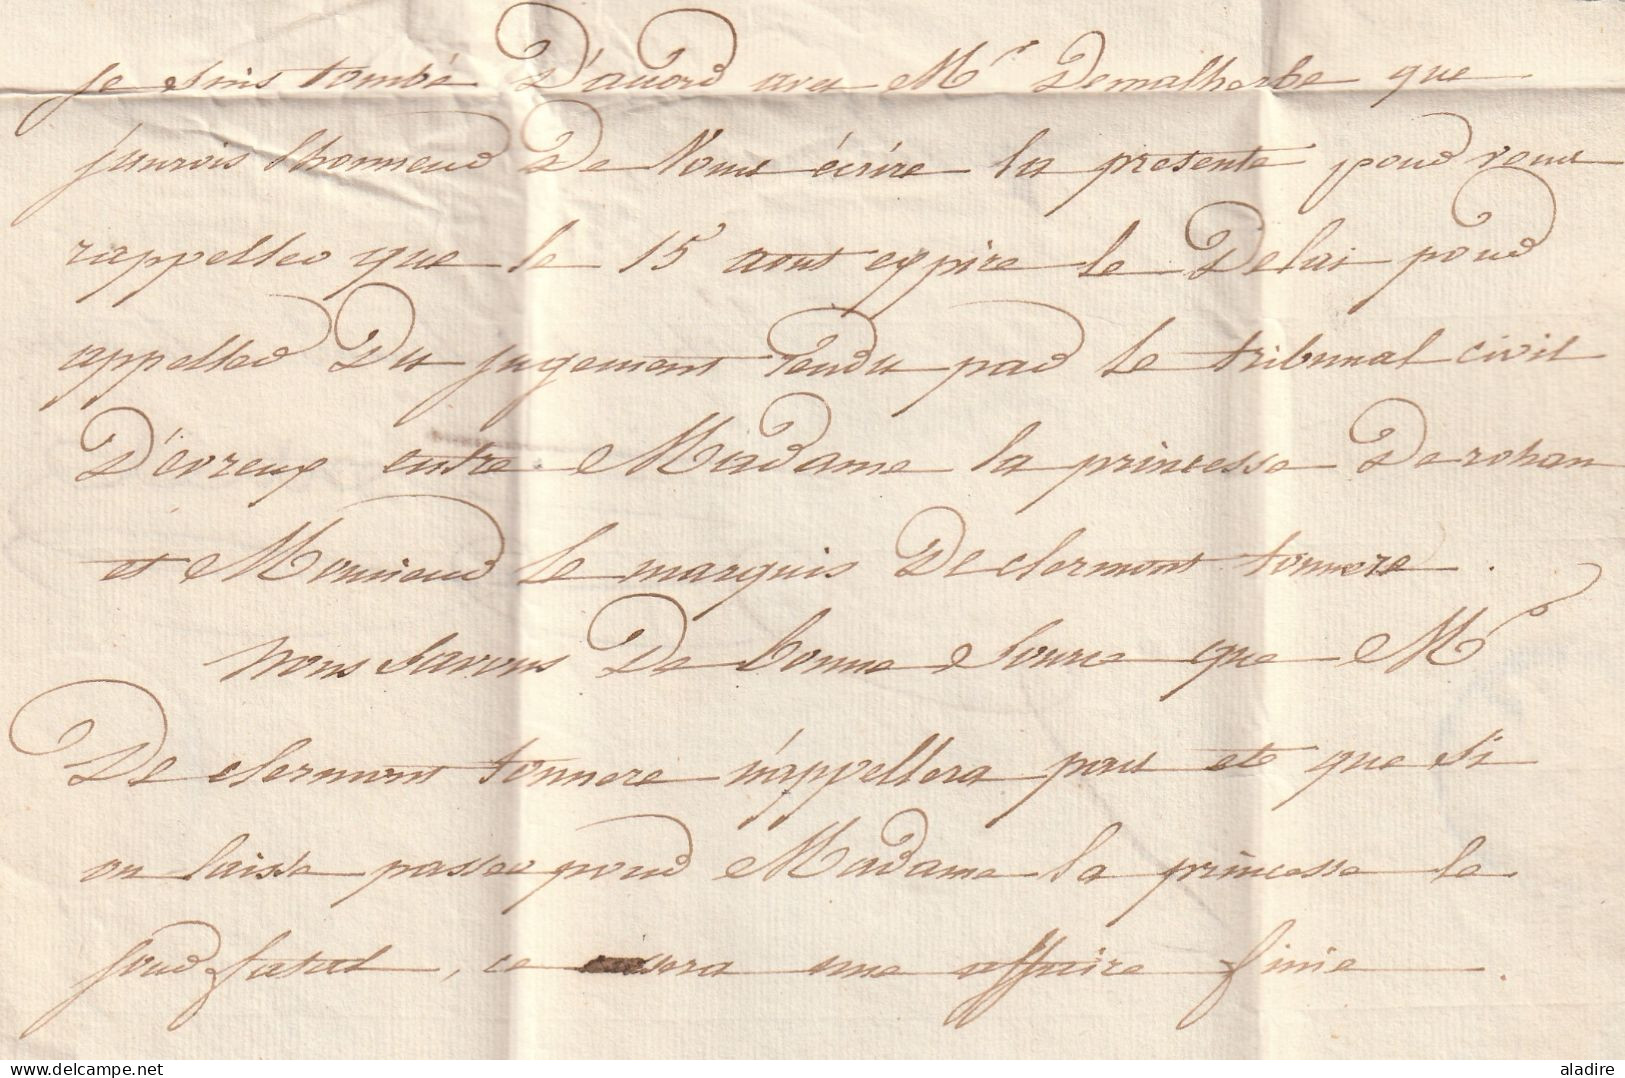 je suis tombé D'accord avec Mr Demalherbe que
j'aurois l'honneur De Vous écrire la presente pour vous
rappeller que le 15 aout expire le Delai pour
appeller Du jugement rendu par le tribunal civil
D'évreux entre Madame la princesse De rohan
et Monsieur le marquis De clermont tonnere.
nous savons De bonne source que Mr
De clermont tonnere n'appellera pas et que si
on laisse passer pour Madame la princesse le
jour fatal, ce sera une affaire finie.
aladire